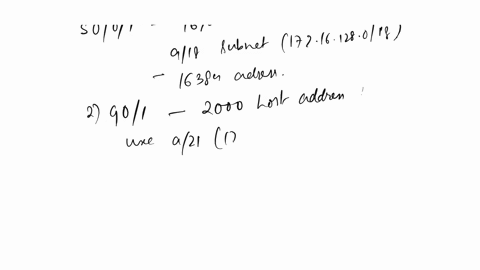 S0/0/1 –
a/18 subnet (172.16.128.0/18)
– 16384 adress.
2) G0/1 – 2000 host address
use a/21 (17